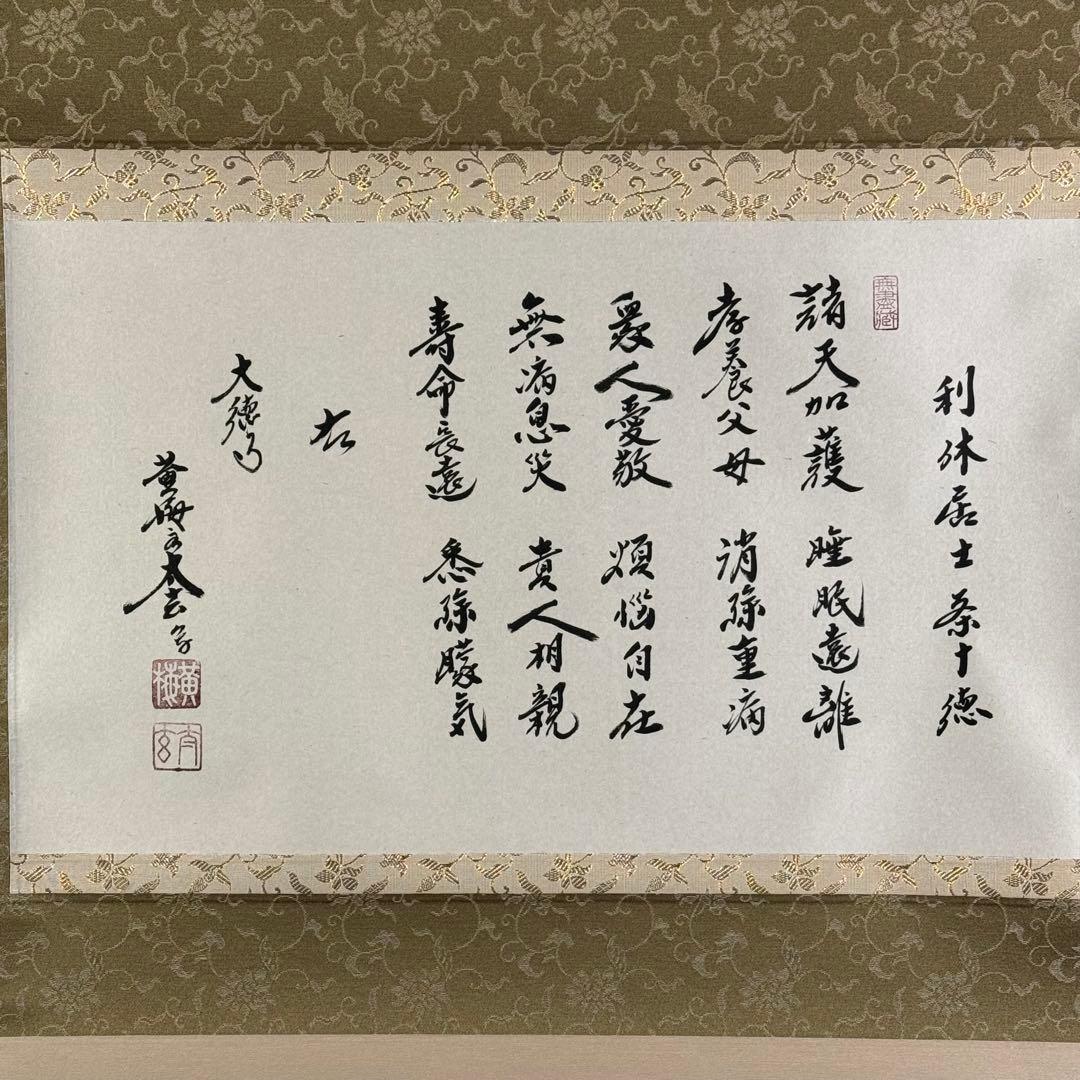 利休居士茶十徳
無盡蔵
諸天加護 睡眠遠離
孝養父母 消除重病
衆人愛敬 煩悩自在
無病息災 貴人相親
壽命長遠 悉除朦気
右
大徳寺
黄梅
黄梅
太玄